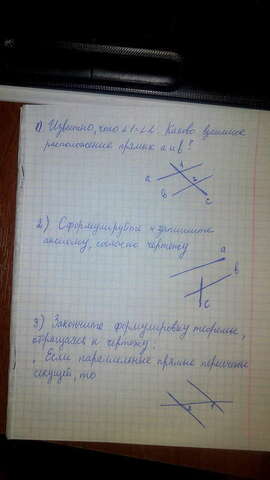 1) Известно, что ∠1=∠2. Каково взаимное
расположение прямых a и b?
1
a
2
b
c
2) Сформулируйте и запишите
аксиому, согласно чертежу
a
b
c
3) Закончите формулировку теоремы,
обращаясь к чертежу:
Если параллельные прямые пересечены
секущей, то